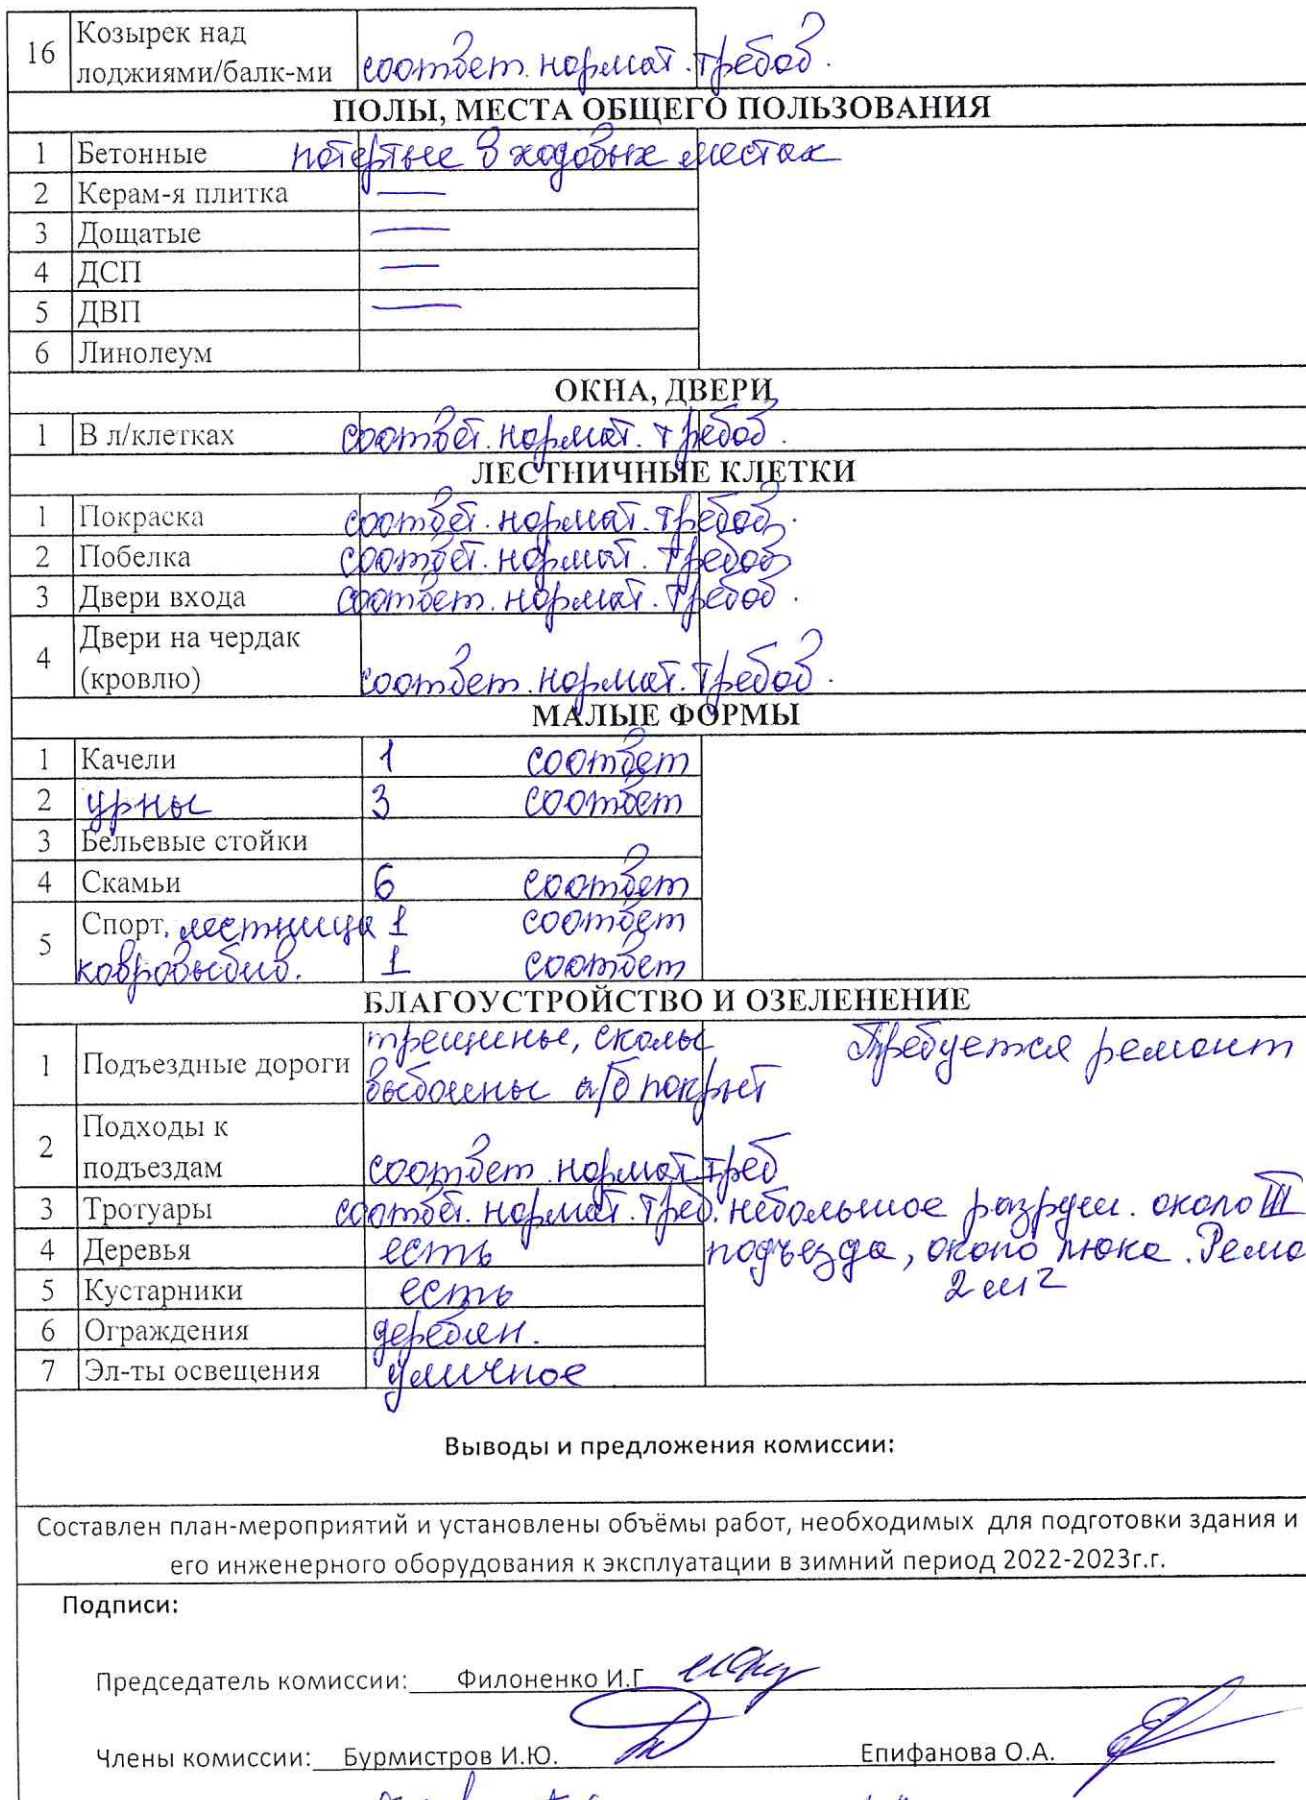 16 Козырек над
лоджиями/балк-ми соответ. нормат. требов.
ПОЛЫ, МЕСТА ОБЩЕГО ПОЛЬЗОВАНИЯ
1 Бетонные потертые в ходовых местах
2 Керам-я плитка —
3 Дощатые —
4 ДСП —
5 ДВП —
6 Линолеум
ОКНА, ДВЕРИ
1 В л/клетках соответ. нормат. требов.
ЛЕСТНИЧНЫЕ КЛЕТКИ
1 Покраска соответ. нормат. требов.
2 Побелка соответ. нормат. требов
3 Двери входа соответ. нормат. требов.
4 Двери на чердак
(кровлю) соответ. нормат. требов.
МАЛЫЕ ФОРМЫ
1 Качели 1 соответ
2 урны 3 соответ
3 Бельевые стойки
4 Скамьи 6 соответ
5 Спорт, лестница 1 соответ
ковровыбив. 1 соответ
БЛАГОУСТРОЙСТВО И ОЗЕЛЕНЕНИЕ
1 Подъездные дороги трещины, сколы Требуется ремонт
выбоины а/б покрыт
2 Подходы к
подъездам соответ нормат. треб
3 Тротуары соответ. нормат. треб. небольшое разруш. около III
4 Деревья есть подъезда, около люка. Ремо
5 Кустарники есть 2 м²
6 Ограждения деревян.
7 Эл-ты освещения уличное
Выводы и предложения комиссии:
Составлен план-мероприятий и установлены объёмы работ, необходимых для подготовки здания и
его инженерного оборудования к эксплуатации в зимний период 2022-2023г.г.
Подписи:
Председатель комиссии: Филоненко И.Г
Члены комиссии: Бурмистров И.Ю. Епифанова О.А.